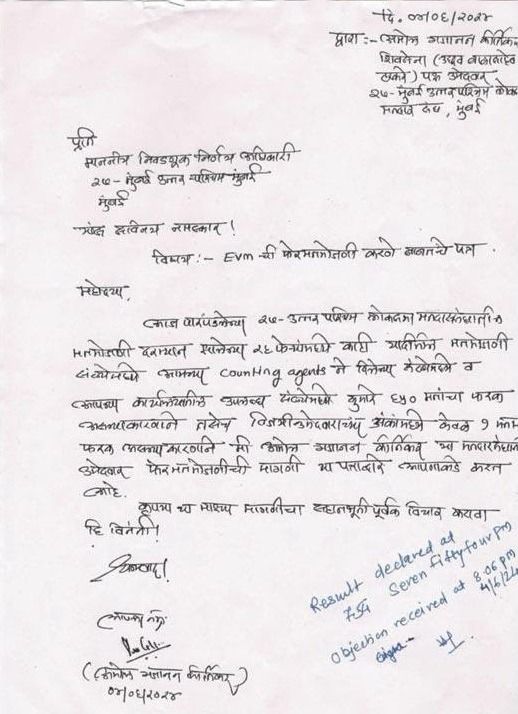 दि. ०४/०६/२०२४
द्वारा :- अमोल गजानन कीर्तिकर
शिवसेना (उद्धव बाळासाहेब
ठाकरे) पक्ष उमेदवार
२७- मुंबई उत्तर पश्चिम लोक
मतदार संघ, मुंबई
प्रति
माननीय निवडणूक निर्णय अधिकारी
२७- मुंबई उत्तर पश्चिम मुंबई
मुंबई
सविनय नमस्कार !
विषय :- EVM ची फेरमतमोजणी करणे बाबतचे पत्र .
महोदया,
आज पारपडलेल्या २७- उत्तर पश्चिम लोकसभा मतदारसंघातील
मतमोजणी दरम्यान झालेल्या २६ फेऱ्यांमध्ये काही मतमोजणी
संख्येमध्ये आमच्या counting agents ने दिलेल्या संख्येमध्ये व
आपल्या कार्यालयातील संख्येमध्ये सुमारे ६५० मतांचा फरक
असल्याकारणाने तसेच विजयी उमेदवाराच्या अंकांमध्ये केवळ १
फरक असल्या कारणाने मी अमोल गजानन कीर्तिकर या मतदारसंघाचा
उमेदवार फेरमतमोजणीची मागणी या पत्राद्वारे आपणाकडे करत
आहे.
कृपया या माझ्या मागणीचा सहानभूती पूर्वक विचार करावा
हि विनंती !
धन्यवाद !
आपला
(अमोल गजानन कीर्तिकर)
०४/०६/२०२४
Result declared at
7:54 Seven fiftyfour pm
Objection received at 8.06 pm
4/6/24